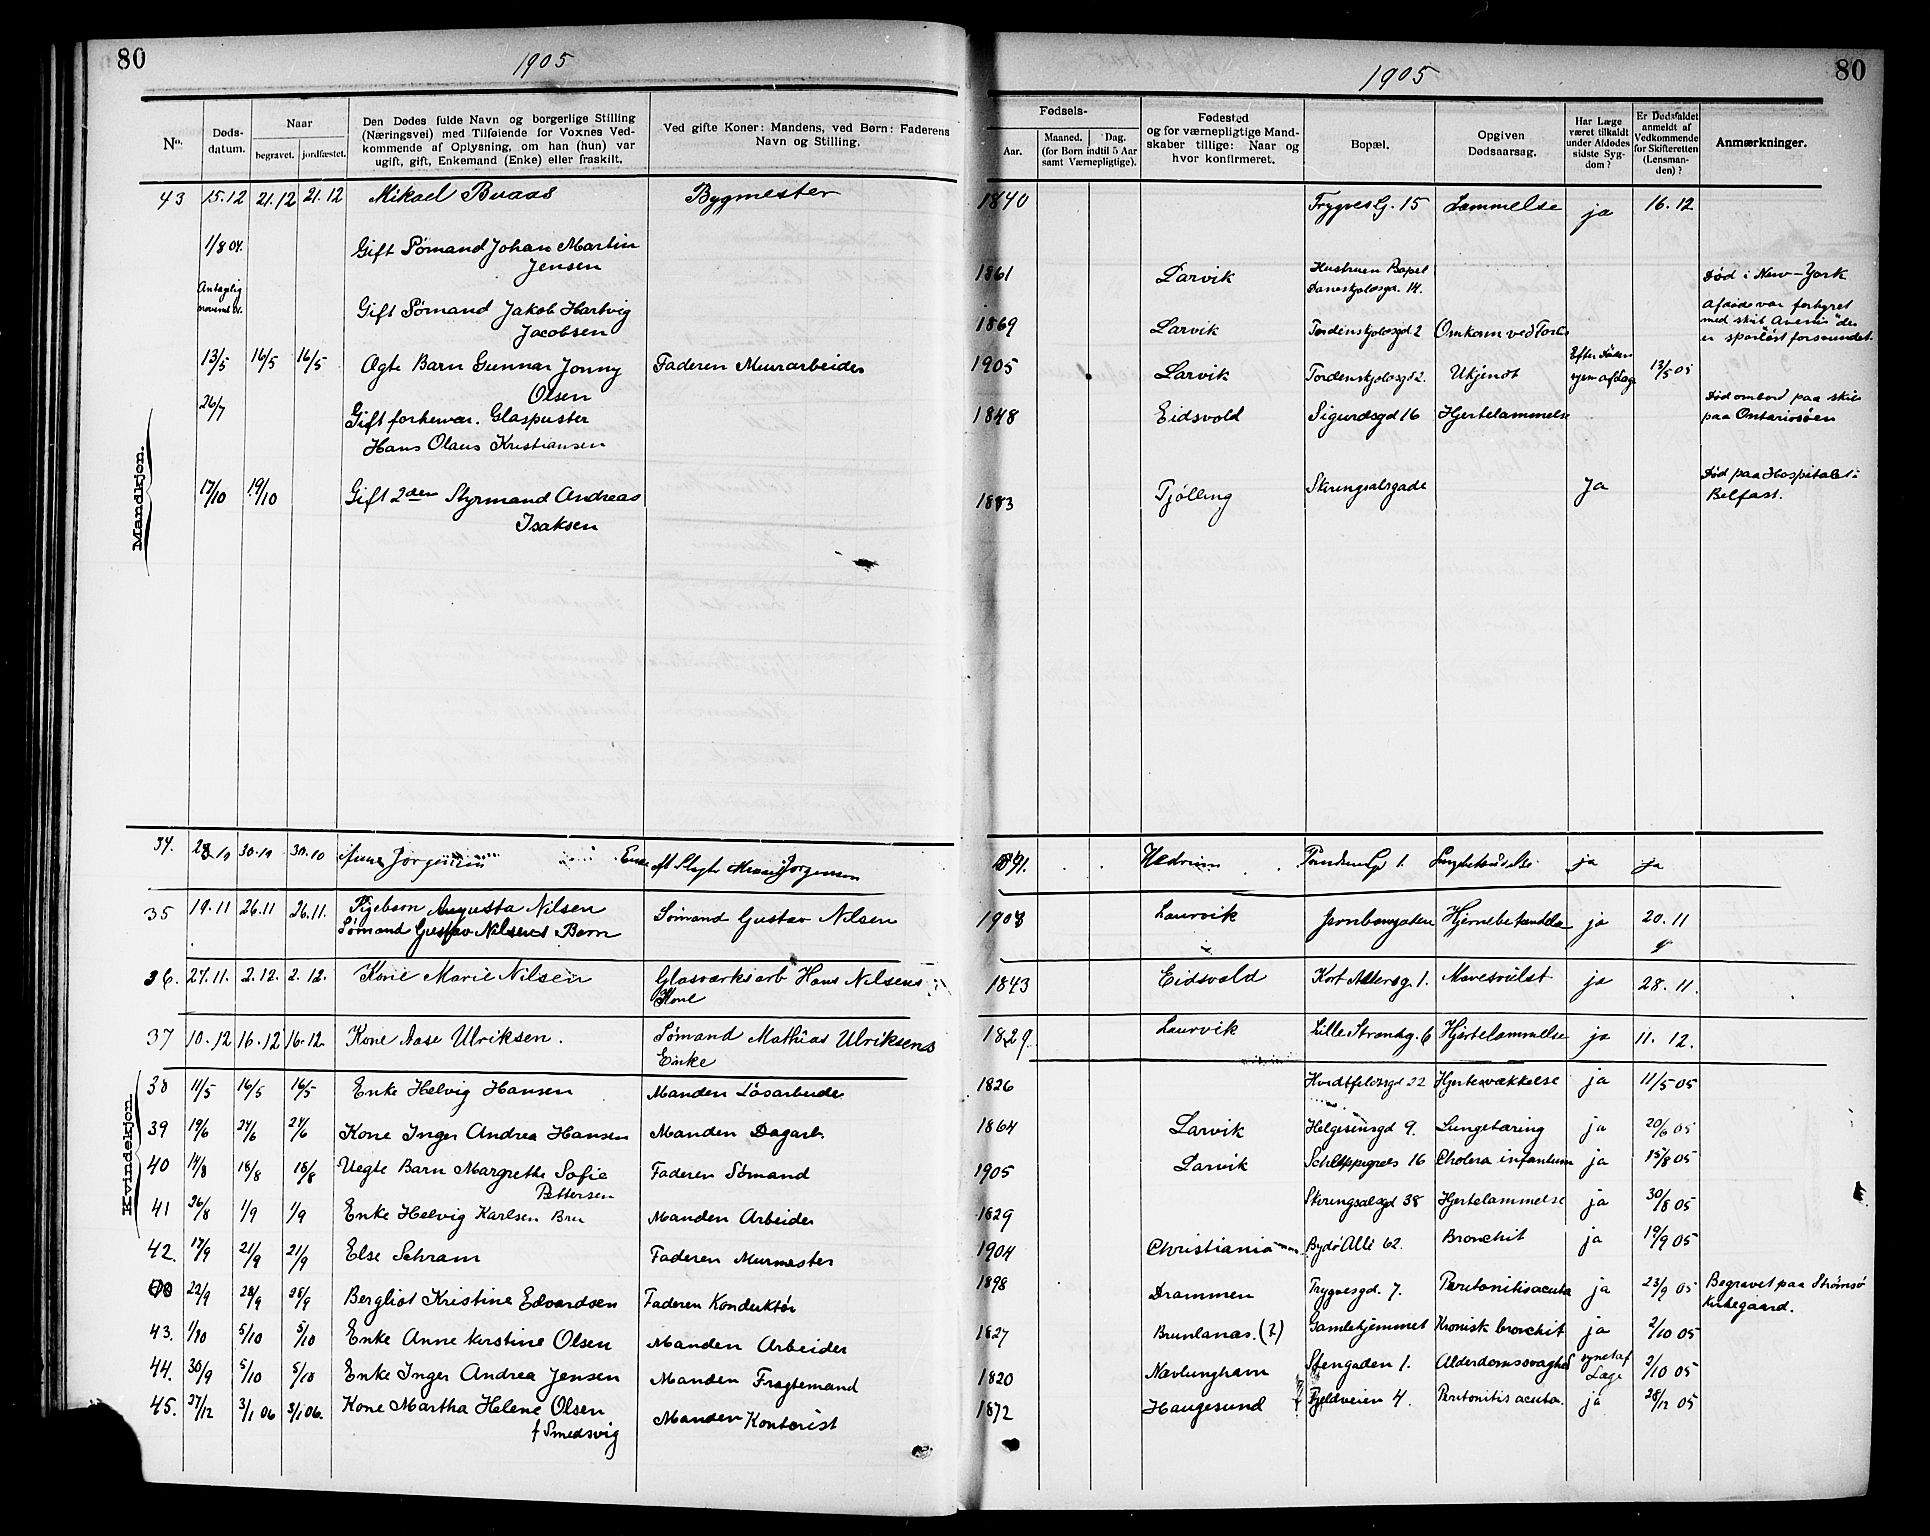 80
1905
1905
80
No.
Døds-
datum.
Naar
begravet. jordfæstet.
Den Dødes fulde Navn og borgerlige Stilling
(Næringsvei) med Tilføiende for Voxnes Ved-
kommende af Oplysning, om han (hun) var
ugift, gift, Enkemand (Enke) eller fraskilt.
Ved gifte Koner: Mandens, ved Børn: Faderens
Navn og Stilling.
Fødsels-
Aar.
Maaned. Dag.
(for Børn indtil 5 Aar
samt Værnepligtige).
Fødested
og for værnepligtige Mand-
skaber tillige: Naar og
hvor konfirmeret.
Bopæl.
Opgiven
Dødsaarsag.
Har Læge
været tilkaldt
under Afdødes
sidste Syg-
dom?
Er Dødsfaldet
anmeldt af
Vedkommende
for Skifteretten
(Lensman-
den)?
Anmærkninger.
Mandkjøn.
43 15.12 21.12 21.12 Mikael Buaas Bygmester 1840 Trygves G. 15 Lammelse ja 16.12
1/8 04. Gift Sømand Johan Martin
Jensen 1861 Larvik Hustruen Bopel
Daneskjoldsgd. 14. Død i New-York
Antaglig
Gift Sømand Jakob Hartvig
Jacobsen 1869 Larvik Tordenskjoldsgd 2 Omkom ved Forlis
Afdøde var forhyret
med skib "Avenis" der
er sporløst forsvundet
13/5 16/5 16/5 Ægte Barn Gunnar Jonny
Olsen Faderen Murarbeider 1905 Larvik Tordenskjoldsgd 2. Ukjendt 13/5 05
26/7 Gift forhenvær. Glaspuster
Hans Olaus Kristiansen 1848 Eidsvold Sigurdsgd 16 Hjertelammelse
Død ombord paa skib
paa Ontariosøen
17/10 19/10 Gift 2den Styrmand Andreas
Isaksen 1883 Tjølling Skiringsalsgade Ja
Død paa Hospitalet i
Belfast.
Kvindekjøn.
34. 28.10 30.10 30.10 Anne Jørgensen Enke 1841. Hedrum ja ja
35 19.11 26.11 26.11. Pigebarn Augusta Nilsen
Sømand Gustav Nilsens Barn Sømand Gustav Nilsen 1903 Laurvik Jernbanegaden Hjernebetændelse ja 20.11
36. 27.11. 2.12. 2.12. Kone Marie Nilsen Glasværksarb Hans Nilsens
Kone 1843 Eidsvold Kort Adlersg. 1. Mavesvulst ja 28.11.
37 10.12 16.12 16.12. Kone Aase Ulriksen. Sømand Mathias Ulriksens
Enke 1829. Laurvik Lille Strandg. 6 Hjertelammelse ja 11.12.
38 11/5 16/5 16/5 Enke Helvig Hansen Manden Løsarbeider 1826 Hvidtfeldsgd 22 Hjertesvækkelse ja 11/5 05
39 19/6 24/6 24/6 Kone Inger Andrea Hansen Manden Dagarb. 1864 Larvik Helgesensgd 9. Lungetæring ja 20/6 05
40 14/8 18/8 18/8 Uegte Barn Margrethe Sofie
Pettersen Faderen Sømand 1905 Larvik 16 Cholera infantum ja 15/8 05
41 26/8 1/9 1/9 Enke Helvig Karlsen Bru Manden Arbeider 1829 Skiringsalsgd 38 Hjertelammelse ja 30/8 05
42. 17/9 21/9 21/9 Else Schram Faderen Murmester 1904 Christiania Bygdø Allé 62. Bronchit ja 19/9 05
22/9 28/9 28/9 Bergliot Kristine Edvardsen Faderen Konduktør 1898 Drammen Trygvesgd. 7. Peritonitis acuta ja 23/9 05 Begravet paa Strømsø
Kirkegaard.
43. 1/10 5/10 5/10 Enke Anne Kirstine Olsen Manden Arbeider 1827 Brunlanæs. (?) Gamlehjemmet Kronisk bronchit ja 2/10 05
44. 30/9 5/10 5/10 Enke Inger Andrea Jensen Manden Fragtemand 1820 Nevlunghavn Stengaden 1. Alderdomssvaghed synet af
Læge 2/10 05
45. 27/12 3/1 06 3/1 06. Kone Martha Helene Olsen
f Smedsvig Manden Kontorist 1872 Haugesund Fjeldveien 4. Peritonitis acuta. ja 28/12 05